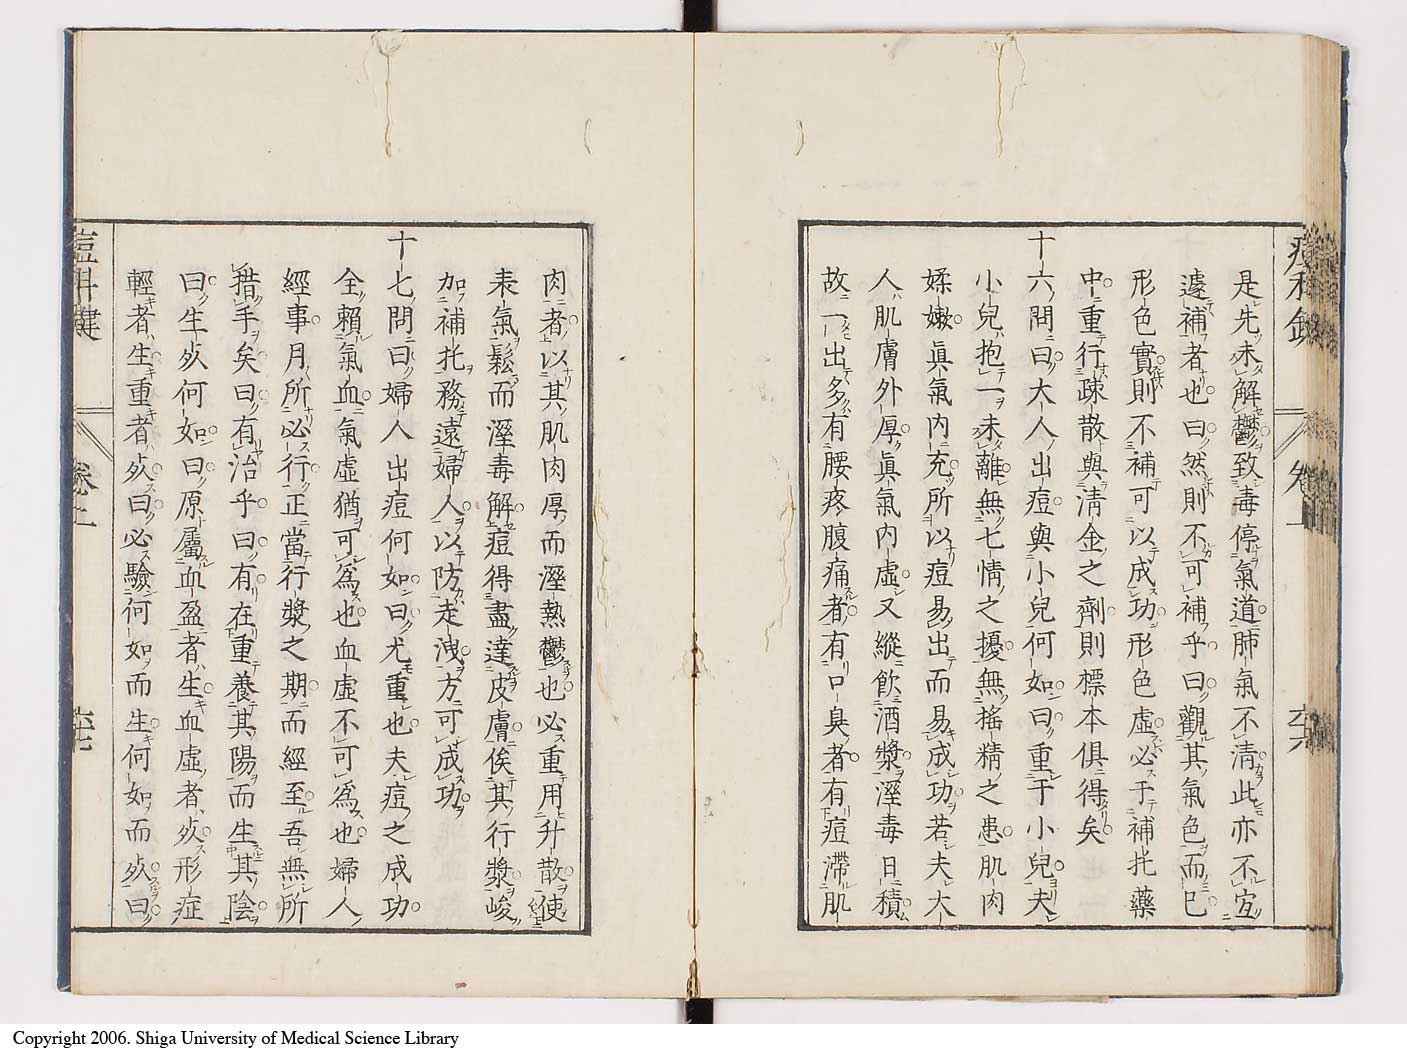 是先未解鬱致毒停氣道肺氣不淸此亦不宜
遽補者也曰然則不可補乎曰觀其氣色而已
形色實則不補可以成功形色虛必于補托藥
中重行疎散與淸金之劑則標本俱得矣
十六問曰大人出痘與小兒何如曰重于小兒夫
小兒抱一未離無七情之擾無搖精之患肌肉
媃嫩眞氣內充所以痘易出而易成功若夫大
人肌膚外厚眞氣內虛又縱飮酒漿溼毒日積
故一出多有腰疼腹痛者有口臭者有痘滯肌
肉者以其肌肉厚而溼熱鬱也必重用升散使
表氣鬆而溼毒解痘得盡達皮膚俟其行漿峻
加補托務遠婦人以防走洩方可成功
十七問曰婦人出痘何如曰尤重也夫痘之成功
全賴氣血氣虛猶可爲也血虛不可爲也婦人
經事月所必行正當行漿之期而經至吾無所
措手矣曰有治乎曰有在重養其陽而生其陰
曰生死何如曰原屬血盈者生血虛者死形症
輕者生重者死曰必驗何如而生何如而死曰
痘科鍵
卷上
Copyright 2006. Shiga University of Medical Science Library